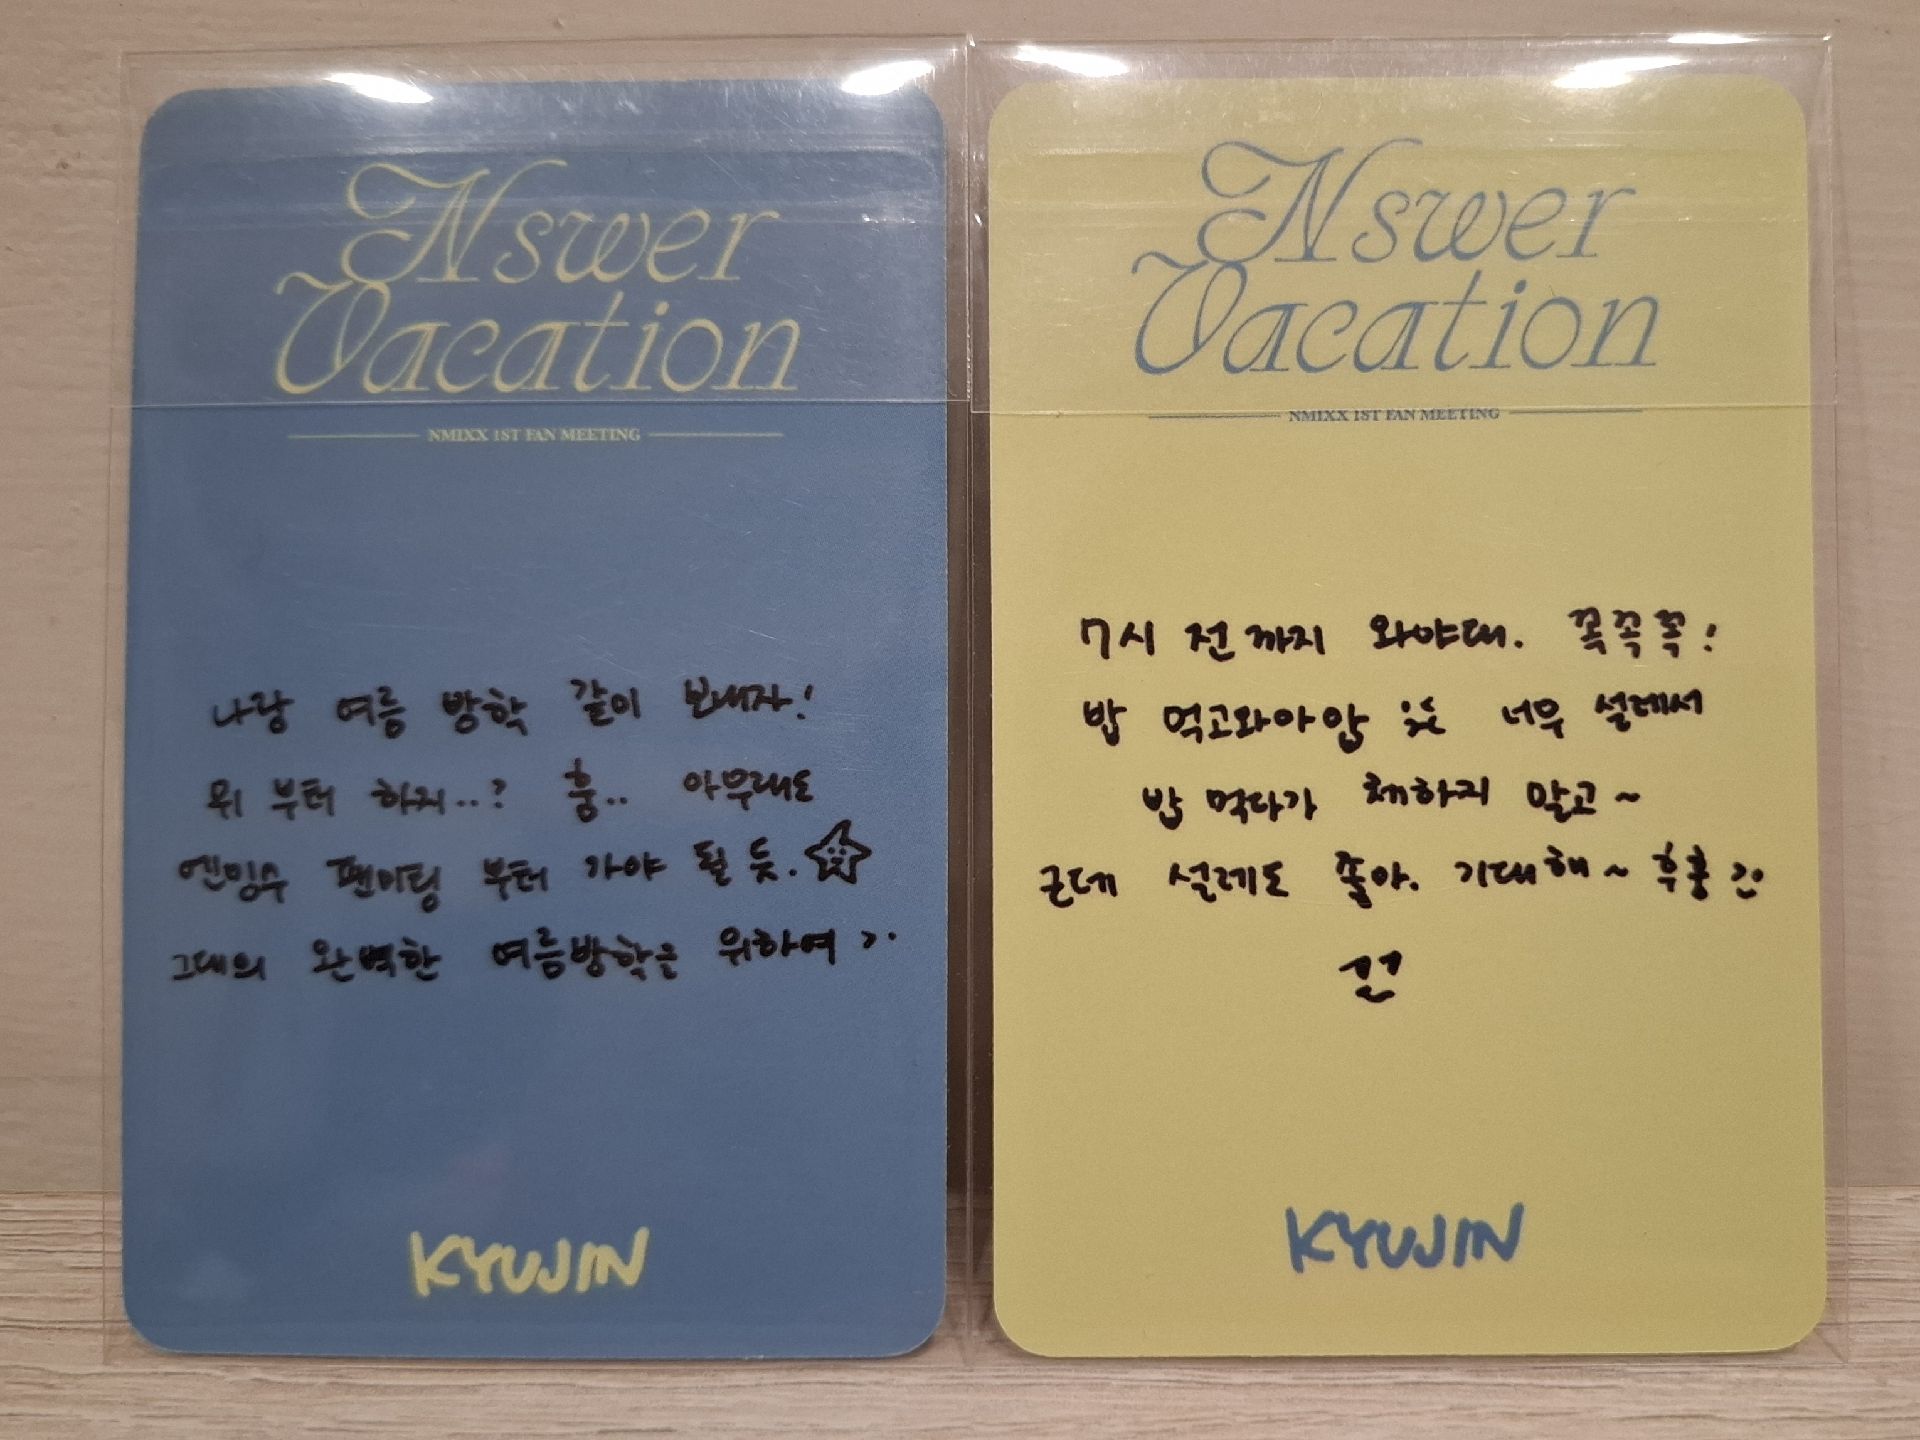 Nswer
Vacation
NMIXX 1ST FAN MEETING
나랑 여름 방학 같이 보내자!
뭐 부터 하지..? 흠.. 아무래도
엔믹수 팬미팅 부터 가야 될 듯.
그대의 완벽한 여름방학을 위하여 >.
KYUJIN
Nswer
Vacation
NMIXX 1ST FAN MEETING
7시 전까지 와야대. 꼭꼭꼭!
밥 먹고와아앙 너무 설레서
밥 먹다가 체하지 말고~
근데 설레도 좋아. 기대해~ 후훙
KYUJIN